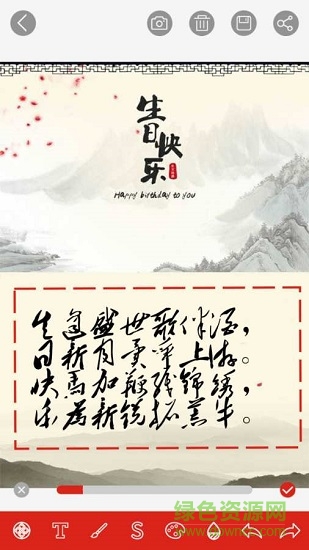 生日快乐
Happy birthday to you
生逢盛世歌伴酒，
日新月异争上游。
快马加鞭锦绣，
乐为新锐拓荒牛。
T S
绿色资源网
www.downcc.com